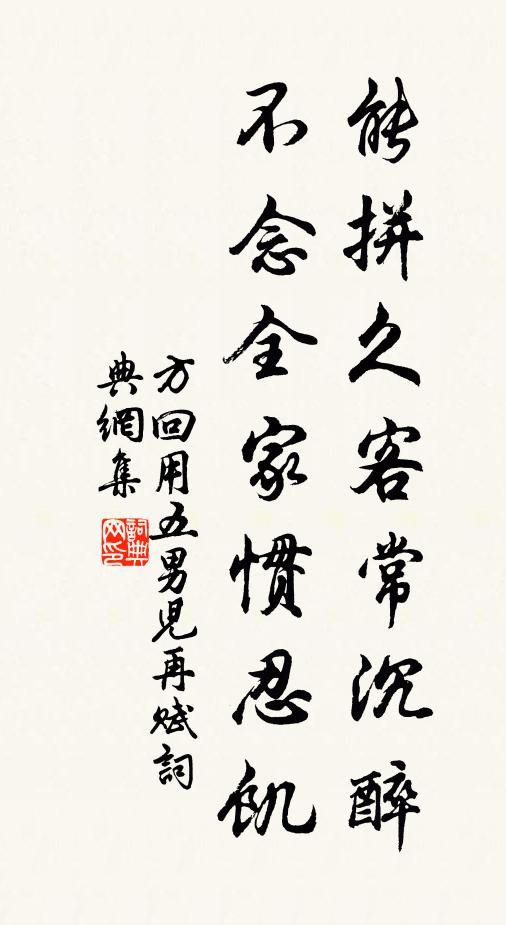 能拼久客常沉醉
不念全家慣忍飢
方回用五男児再賦詞
典網集
詞典
网印